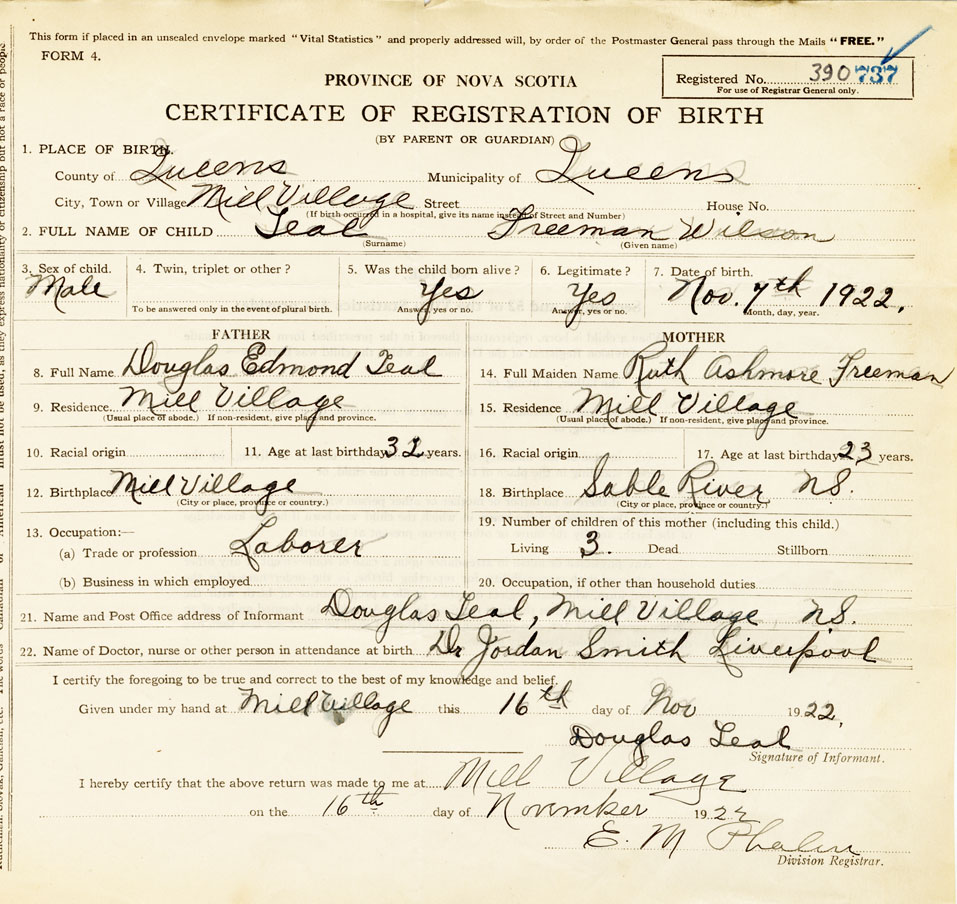 This form if placed in an unsealed envelope marked "Vital Statistics" and properly addressed will, by order of the Postmaster General pass through the Mails "FREE."
FORM 4.
Registered No. 390737
For use of Registrar General only.
PROVINCE OF NOVA SCOTIA
CERTIFICATE OF REGISTRATION OF BIRTH
(BY PARENT OR GUARDIAN)
1. PLACE OF BIRTH.
County of Queens Municipality of Queens
City, Town or Village Mill Village Street House No.
(If birth occurred in a hospital, give its name instead of Street and Number)
2. FULL NAME OF CHILD Teal Freeman Wilson
(Surname) (Given name)
3. Sex of child. 4. Twin, triplet or other? 5. Was the child born alive? 6. Legitimate? 7. Date of birth.
Male Yes Yes Nov. 7th 1922.
To be answered only in the event of plural birth. Answer, yes or no. Answer, yes or no. Month, day, year.
FATHER MOTHER
8. Full Name Douglas Edmond Teal 14. Full Maiden Name Ruth Ashmore Freeman
9. Residence Mill Village 15. Residence Mill Village
(Usual place of abode.) If non-resident, give place and province. (Usual place of abode.) If non-resident, give place and province.
10. Racial origin 11. Age at last birthday 32 years. 16. Racial origin 17. Age at last birthday 23 years.
12. Birthplace Mill Village 18. Birthplace Sable River NS.
(City or place, province or country.) (City or place, province or country.)
13. Occupation:— 19. Number of children of this mother (including this child.)
(a) Trade or profession Laborer Living 3. Dead Stillborn
(b) Business in which employed 20. Occupation, if other than household duties
21. Name and Post Office address of Informant Douglas Teal, Mill Village NS.
22. Name of Doctor, nurse or other person in attendance at birth Dr Jordan Smith Liverpool
I certify the foregoing to be true and correct to the best of my knowledge and belief.
Given under my hand at Mill Village this 16th day of Nov 1922,
Douglas Teal
Signature of Informant.
I hereby certify that the above return was made to me at Mill Village
on the 16th day of November 1922
E. M Phalen
Division Registrar.